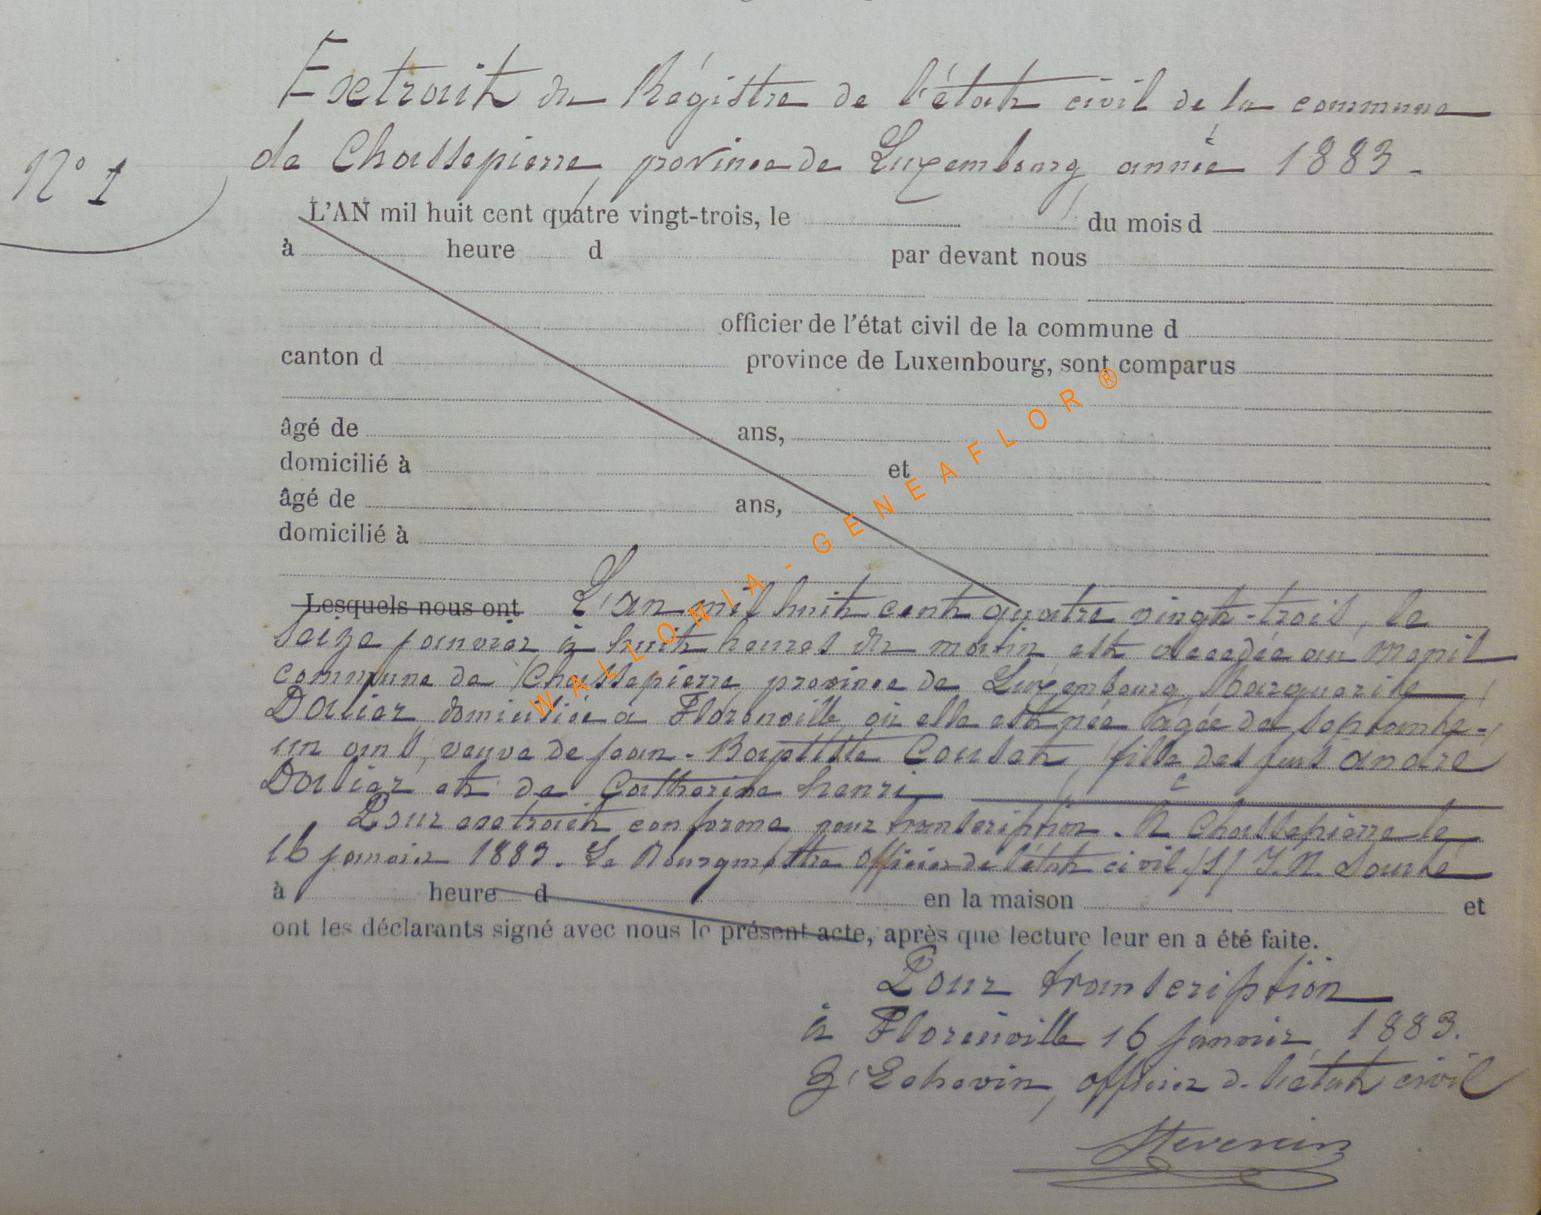 Extrait du Régistre de l'état civil de la commune
de Chassepierre, province de Luxembourg, année 1883.
N° 1
L'AN mil huit cent quatre vingt-trois, le du mois d
à heure d par devant nous
officier de l'état civil de la commune d
canton d province de Luxembourg, sont comparus
âgé de ans,
domicilié à et
âgé de ans,
domicilié à
Lesquels nous ont L'an mil huit cent quatre vingt-trois, le
seize janvier à huit heures du matin est decedée au Menil
commune de Chassepierre province de Luxembourg, Marguerite
Dalier domiciliée à Florenville, où elle est née âgée de septante-
un ans, veuve de Jean-Baptiste Couset, fille des feus André
Dalier et de Catherine henri
Pour extrait conforme pour transcription. A Chassepierre le
16 janvier 1883. Le Bourgmestre officier de l'état civil. /S/ J. N.
à heure d en la maison et
ont les déclarants signé avec nous le présent acte, après que lecture leur en a été faite.
Pour transcription
à Florenville 16 janvier 1883.
L'Echevin, officier d. l'état civil
WALLONIA - GENEAFLOR ®